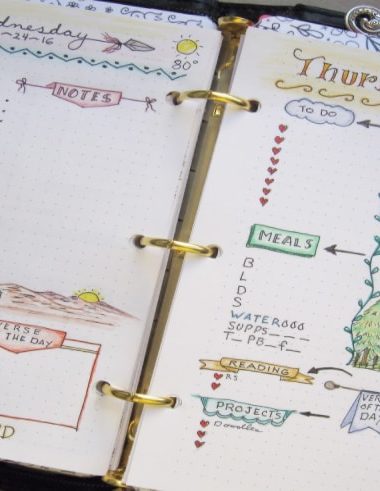 dnesday
-24-16
80°
NOTES
VERSE
THE DAY
Thurs
TO DO
MEALS
B
L
D
S
WATER
SUPPS
READING
RS
PROJECTS
Doodles
VER
OF T
DA